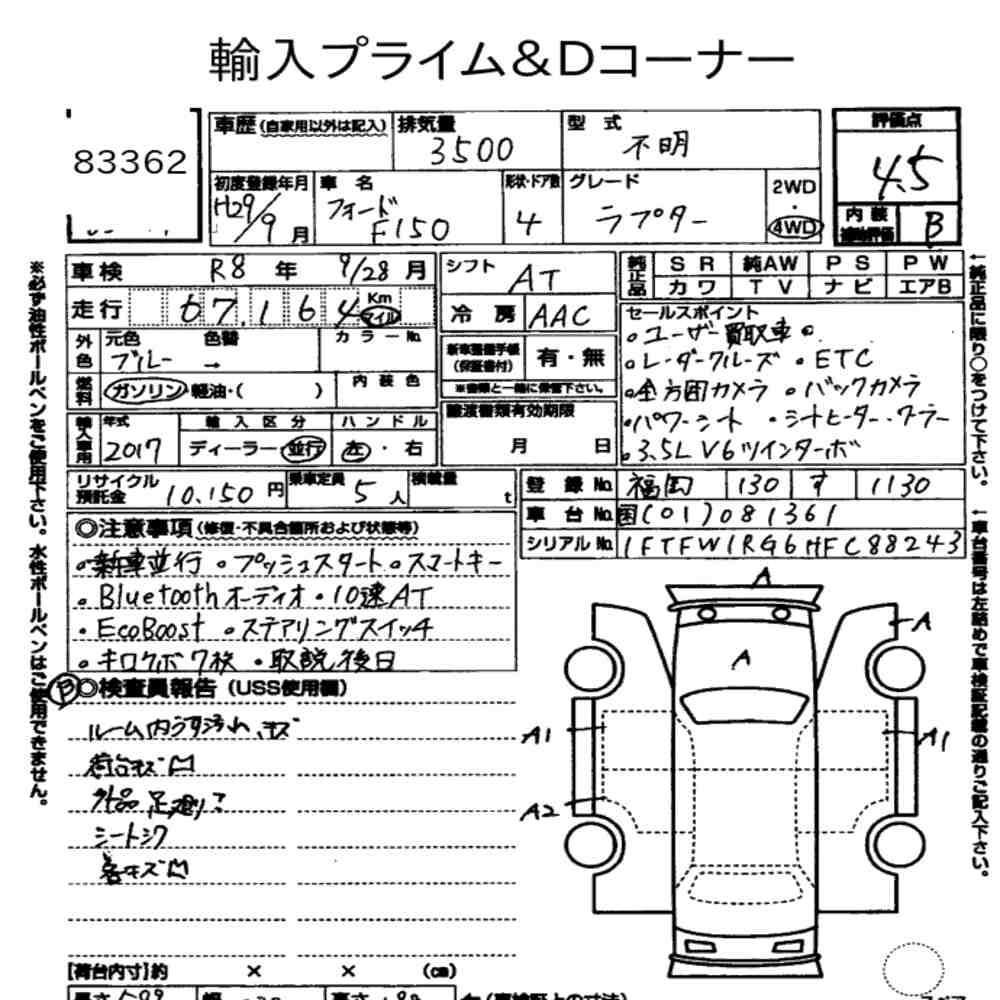 輸入プライム&Dコーナー
83362
車歴(自家用以外は記入)
排気量 3500
型式 不明
評価点 4.5
初度登録年月 H29/9月
車名 フォード F150
形状・ドア数 4
グレード ラプター
2WD・4WD
内装補助評価 B
車検 R8年 9/28月
走行 67,164 Km マイル
シフト AT
冷房 AAC
純正品 SR 純AW PS PW
カワ TV ナビ エアB
外色 元色 ブルー 色替 → カラーNo.
燃料 ガソリン・軽油・( ) 内装色
新車整備手帳(保証書付) 有・無
※書類と一緒に保管下さい。
セールスポイント
。ユーザー買取車。
。レーダークルーズ 。ETC
。全方囲カメラ 。バックカメラ
。パワーシート 。シートヒーター・クーラー
。3.5L V6ツインターボ
輸入車用 年式 2017
輸入区分 ディーラー・並行
ハンドル 左・右
譲渡書類有効期限 月 日
リサイクル預託金 10,150円
乗車定員 5人
積載量 t
登録No. 福岡 130 す 1130
車台No. 国(01)081361
シリアルNo. 1FTFW1RG6HFC88243
◎注意事項(修復・不具合箇所および状態等)
。新車並行 。プッシュスタート 。スマートキー
。Bluetoothオーディオ・10速AT
。EcoBoost 。ステアリングスイッチ
。キロクボ7枚 ・取説後日
B ◎検査員報告(USS使用欄)
ルーム内うす汚れ、キズ
荷台キズ凹
外品足廻り?
シートシワ
各キズ凹
A
A
A
A1
A1
A2
【荷台内寸】約 × × (cm)
※必ず油性ボールペンをご使用下さい。水性ボールペンはご使用できません。
←純正品に限り○をつけて下さい。
←車台番号は左詰めで車検証記載の通りご記入下さい。